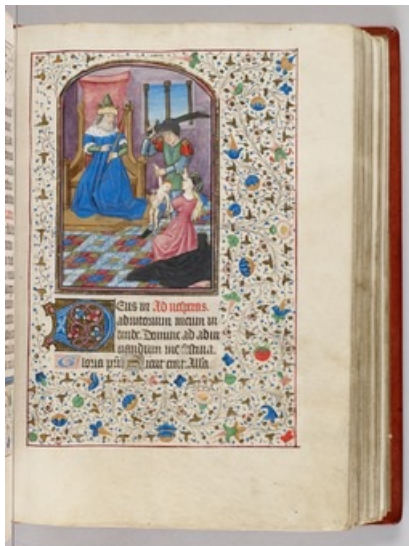 Eus in Ad vesperas.
adiutorium meum in
tende. Domine ad adiu
uandum me festina.
Gloria pri sicut erat. Alla